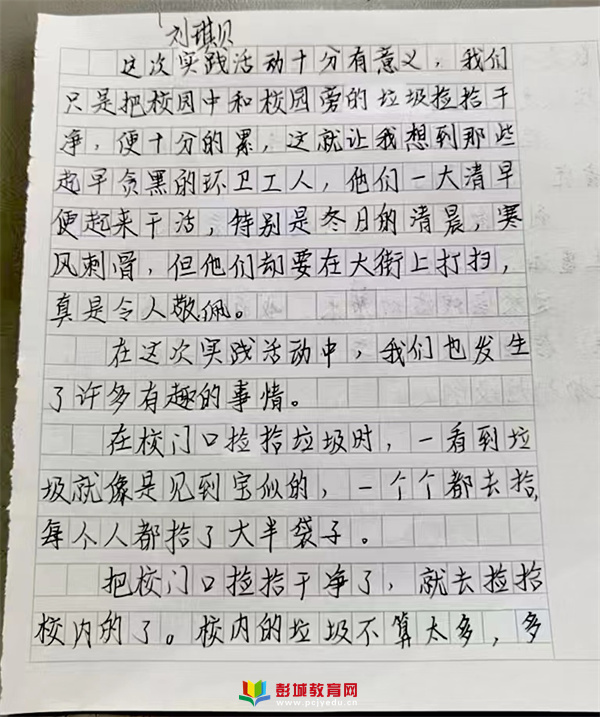 刘琪贝
这次实践活动十分有意义，我们
只是把校园中和校园旁的垃圾捡拾干
净，便十分的累，这就让我想到那些
起早贪黑的环卫工人，他们一大清早
便起来干活，特别是冬日的清晨，寒
风刺骨，但他们却要在大街上打扫，
真是令人敬佩。
在这次实践活动中，我们也发生
了许多有趣的事情。
在校门口捡拾垃圾时，一看到垃
圾就像是见到宝似的，一个个都去拾，
每个人都拾了大半袋子。
把校门口捡拾干净了，就去捡拾
校内的了。校内的垃圾不算太多，多
彭城教育网
www.pcjyedu.cn